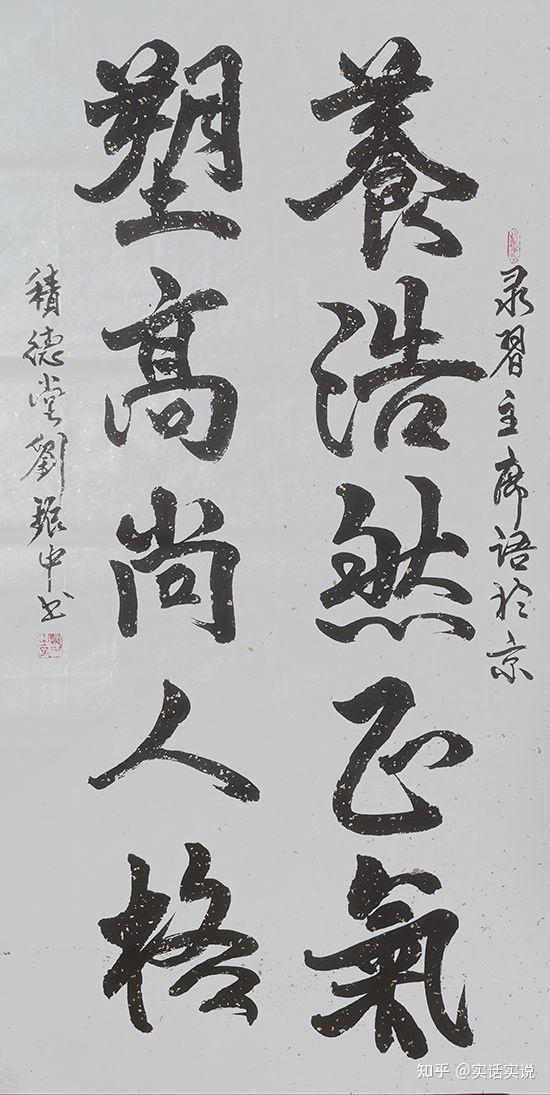 録習主席语於京
養浩然正氣
塑高尚人格
積德堂劉振中书
知乎 @实话实说